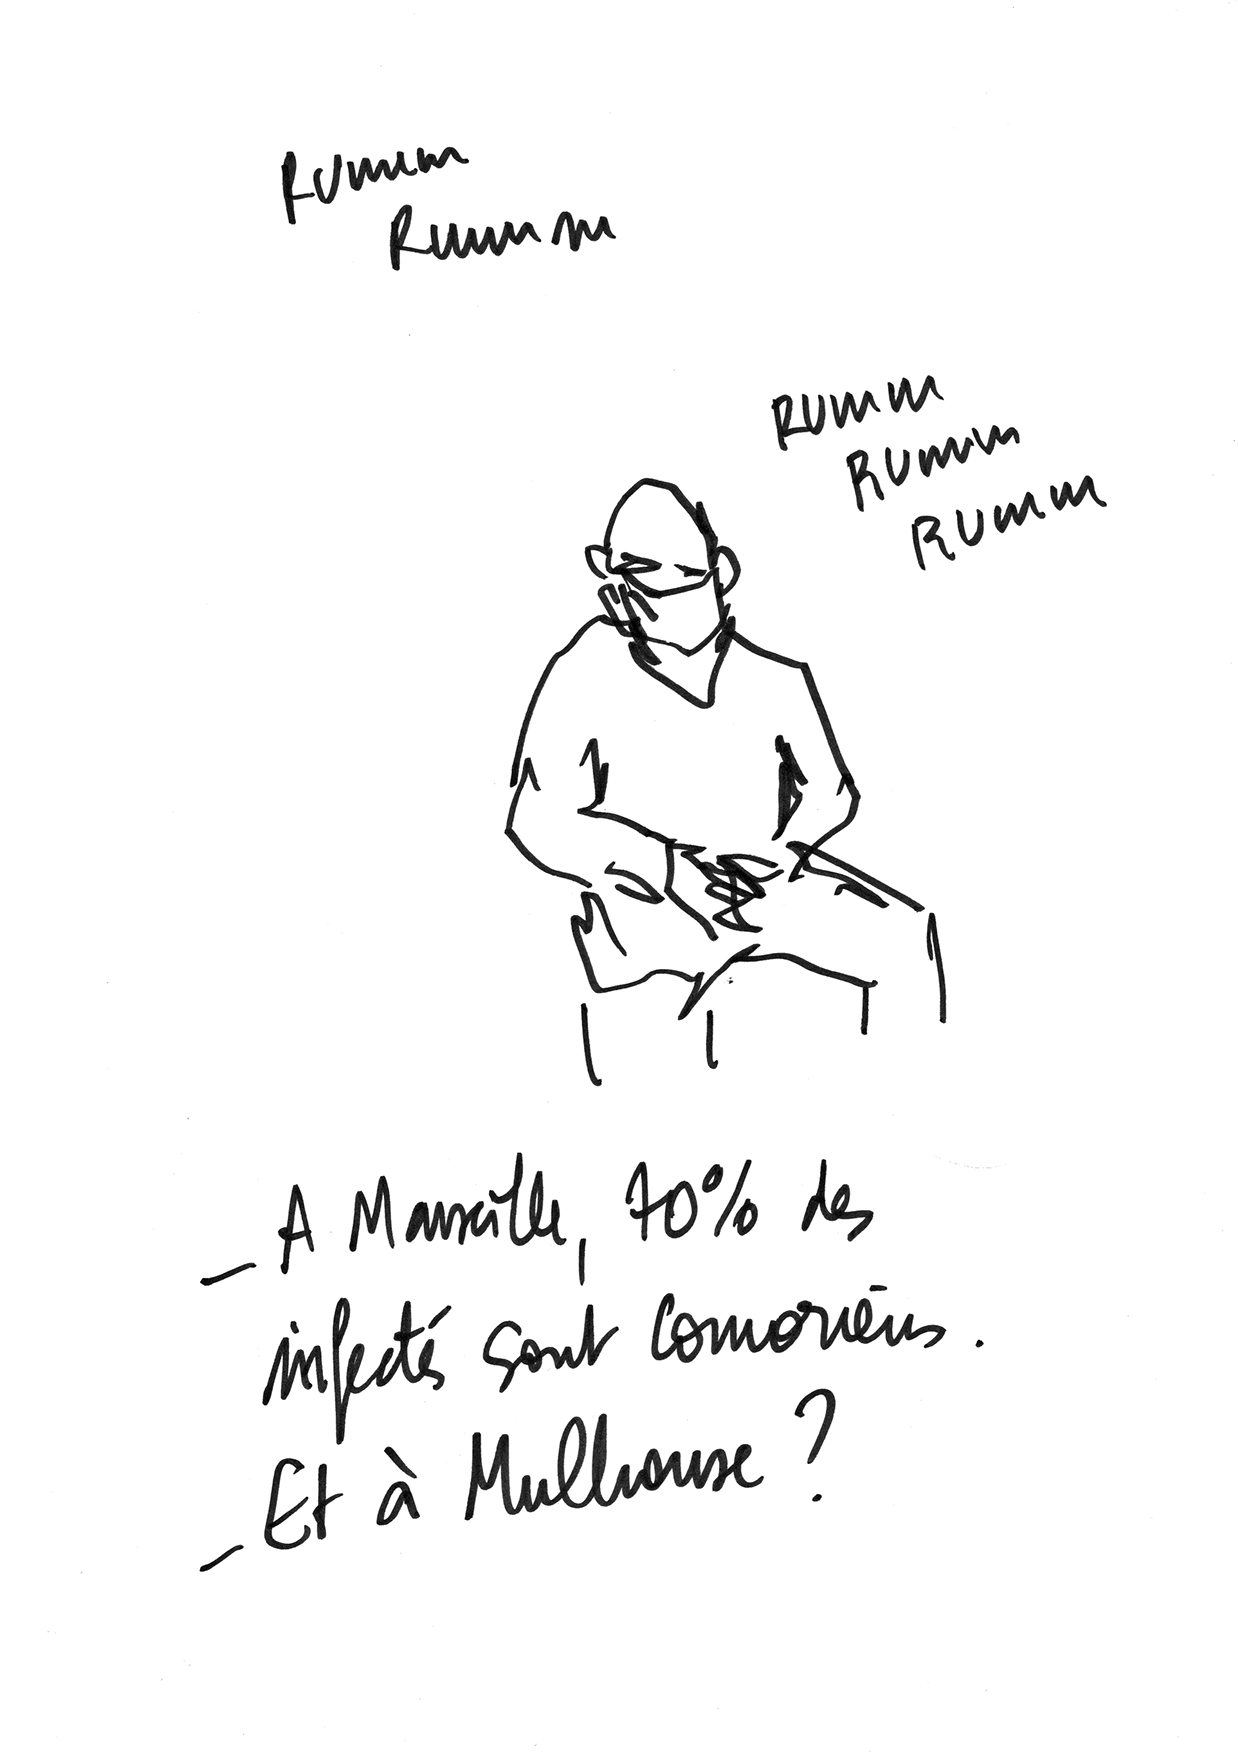 Rumm
Rumm m
Rumm
Rumm
Rumm
_ A Marseille, 70% des
infectés sont Comoriens.
_ Et à Mulhouse ?